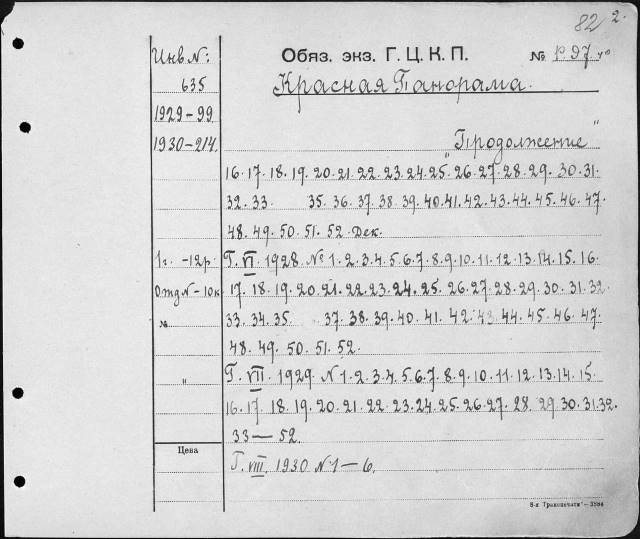 82 2.
Инв. №: Обяз. экз. Г. Ц. К. П. № Р97
635 Красная Панорама.
1929-99
1930-214. "Продолжение"
16.17.18.19.20.21.22.23.24.25.26.27.28.29.30.31.
32.33. 35.36.37.38.39.40.41.42.43.44.45.46.47.
48.49.50.51.52 Дек.
1г. -12р. Г. VI. 1928 № 1.2.3.4.5.6.7.8.9.10.11.12.13.14.15.16.
Отд N - 10 к 17.18.19.20.21.22.23.24.25.26.27.28.29.30.31.32
№ 33.34.35. 37.38.39.40.41.42.43.44.45.46.47.
48.49.50.51.52.
" Г. VII. 1929. N 1.2.3.4.5.6.7.8.9.10.11.12.13.14.15.
16.17.18.19.20.21.22.23.24.25.26.27.28.29.30.31.32.
33 — 52.
Цена
Г. VIII. 1930 N 1 — 6.
8-я „Транспечати“ — 3584